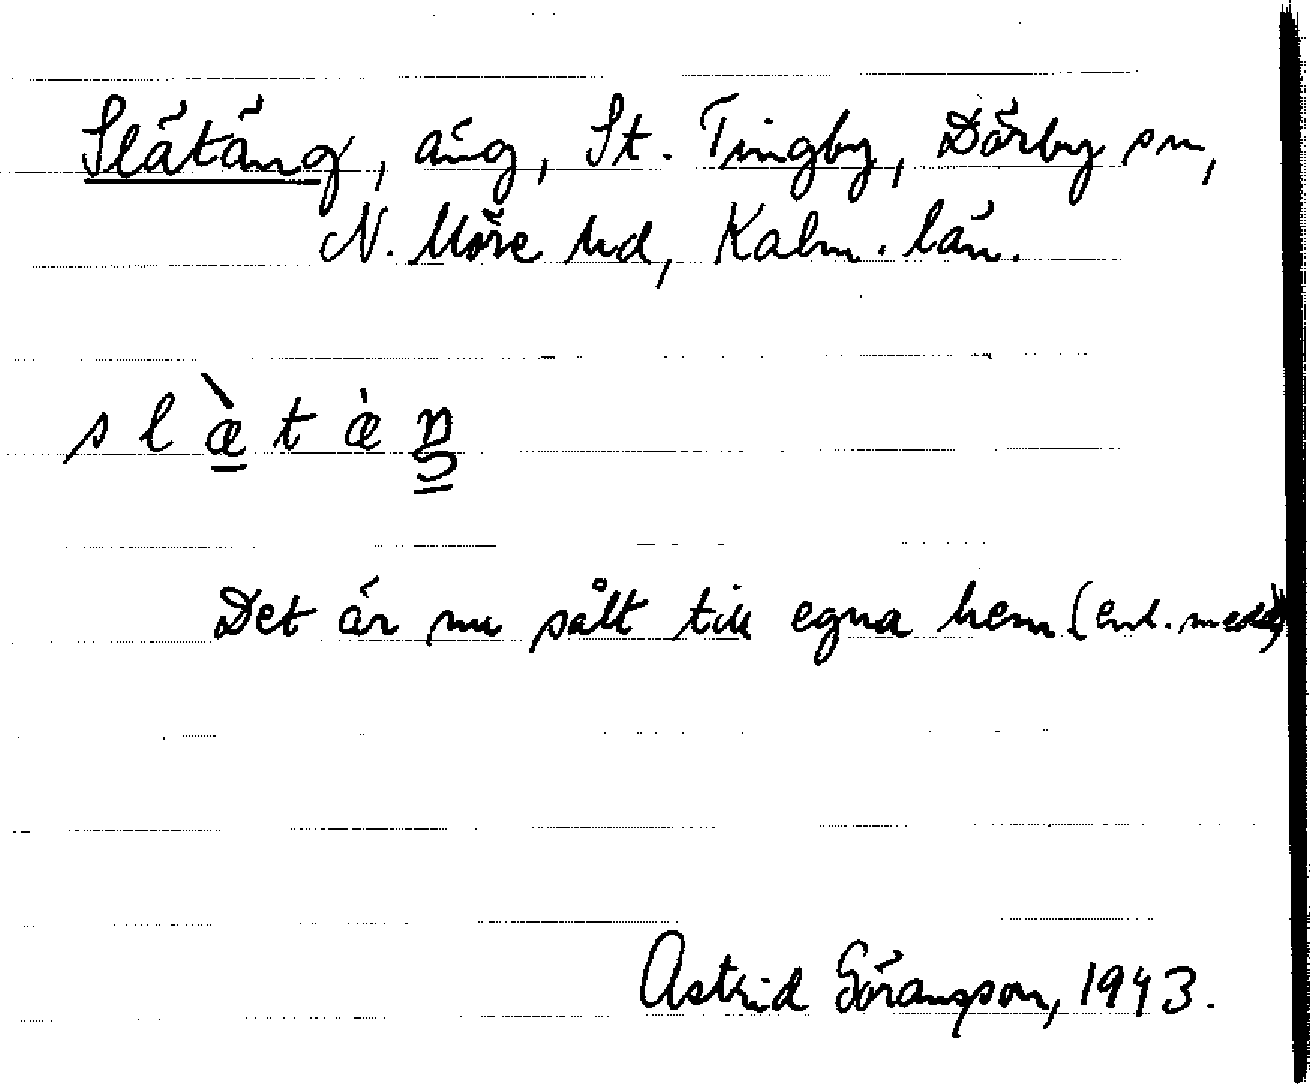 Slätäng, äng, St. Tingby, Dörby sn,
N. Möre hd, Kalm. län.
slæ̀tæ̀ŋ
Det är nu sålt till egna hem (enl. medd)
Astrid Göransson, 1943.